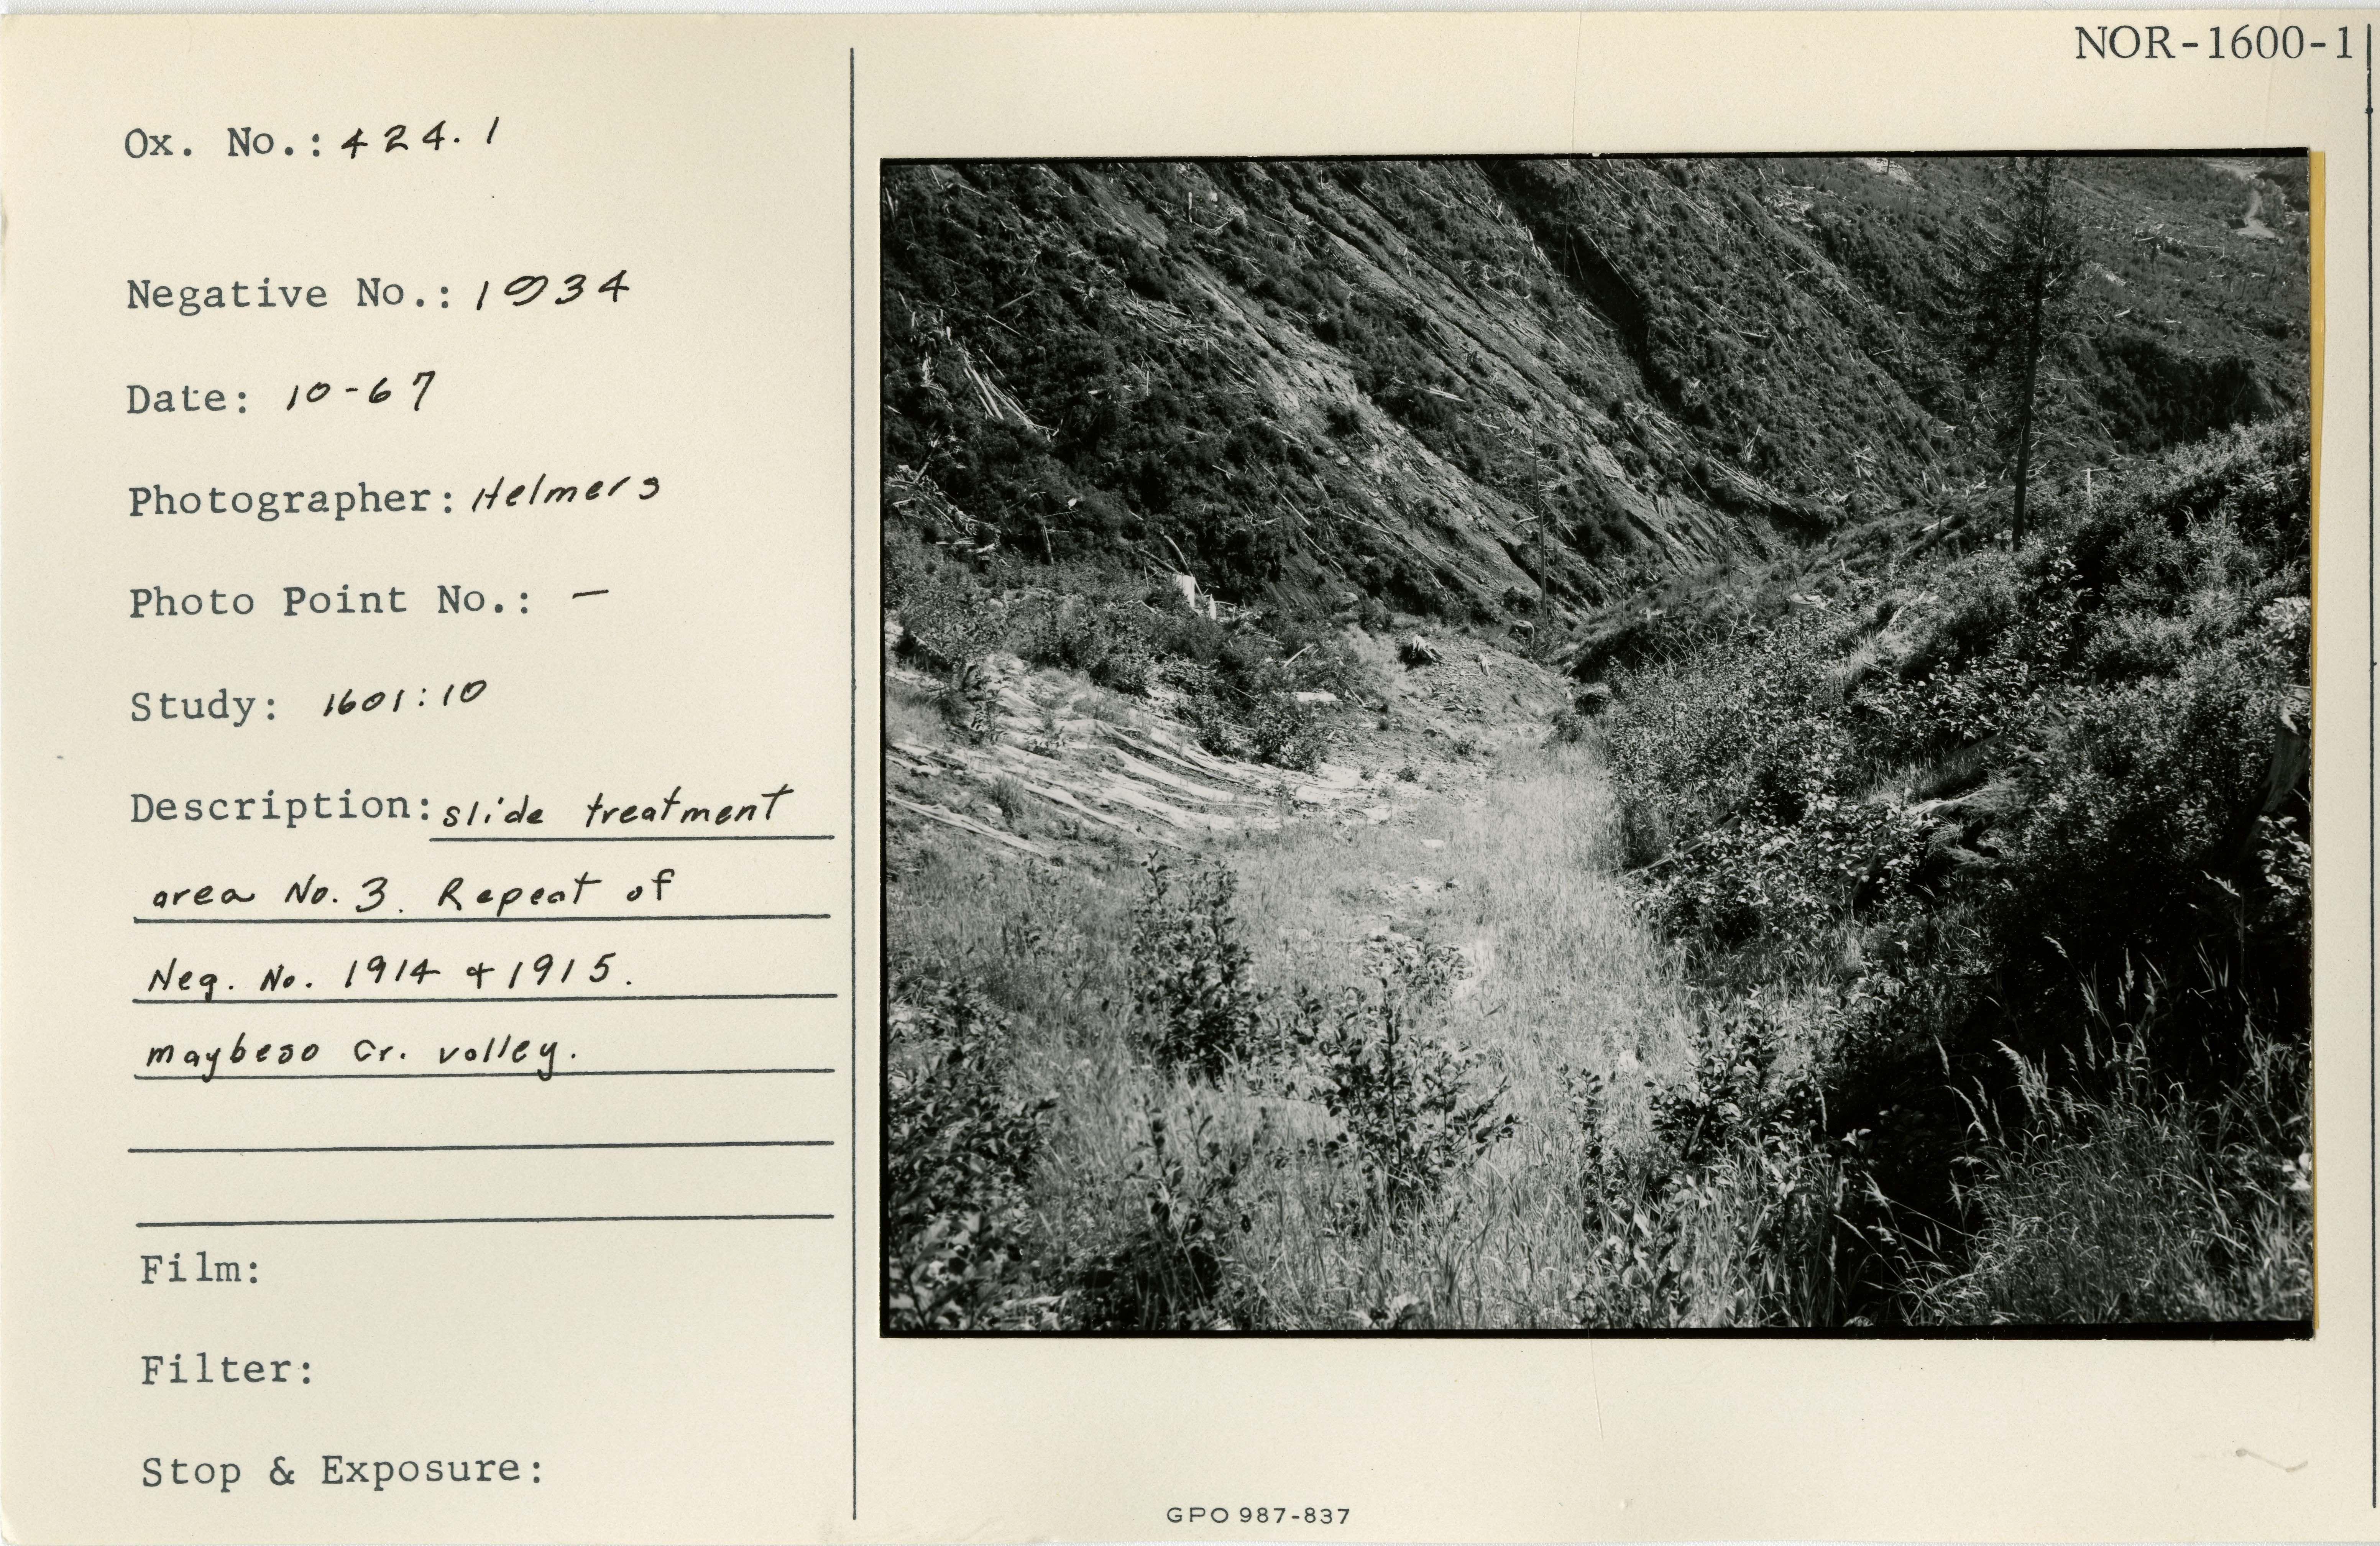 NOR-1600-1
Ox. No.: 424.1
Negative No.: 1934
Date: 10-67
Photographer: Helmers
Photo Point No.: —
Study: 1601:10
Description: slide treatment
area No. 3. Repeat of
Neg. No. 1914 & 1915.
maybeso Cr. valley.
Film:
Filter:
Stop & Exposure:
GPO 987-837